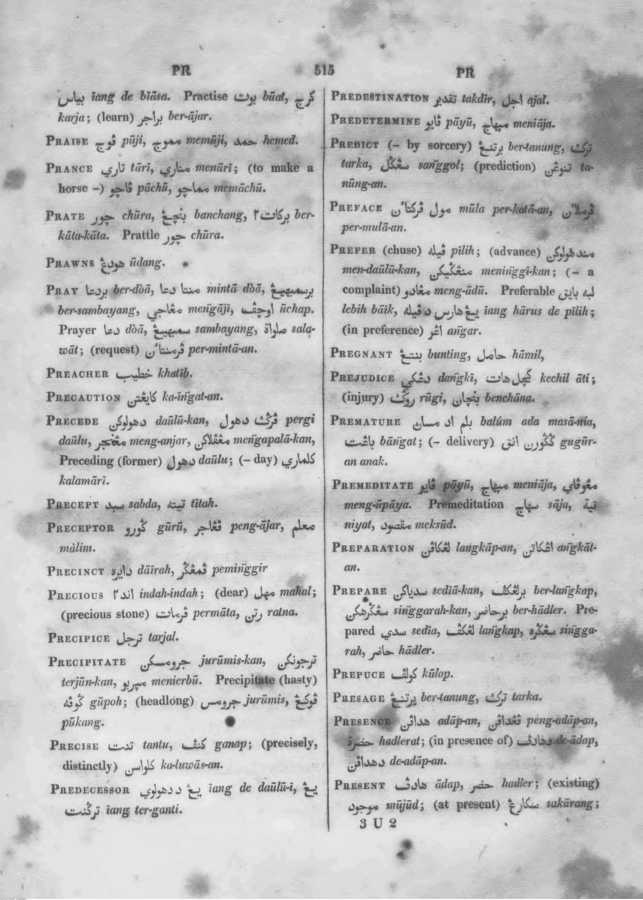 PR 515 PR
بياس iang de biāsa. Practise بوت būat, كرج
karja; (learn) براجر ber-ājar.
PRAISE فوج pūji, مموج memūji, حمد hemed.
PRANCE تاري tāri, مناري menāri; (to make a
horse –) فاچو pāchū, مماچو memāchū.
PRATE چور chūra, بنچڠ banchang, بركات٢ ber-
kāta-kāta. Prattle چور chūra.
PRAWNS هودڠ ūdang.
PRAY بردعا ber-dōā, منتا دعا mintā dōā, برسمبهيڠ
ber-sambayang, مڠاجي mengāji, اوچف ūchap.
Prayer دعا dōā, سمبهيڠ sambayang, صلواة sala-
wāt; (request) فرمنتاءن per-mintā-an.
PREACHER خطيب khatib.
PRECAUTION كايڠتن ka-ingat-an.
PRECEDE دهولوكن daūlū-kan, فرڬ دهول pergi
daūlu, meng-anjar, مڠفلاكن mengapalā-kan,
Preceding (former) دهول daūlu; (– day) كلماري
kalamārī.
PRECEPT سبد sabda, تيته tītah.
PRECEPTOR ڬورو gūrū, فڠاجر peng-ājar, معلم
mālim.
PRECINCT دايره dāīrah, فمڠڬر peminggir
PRECIOUS اند٢ indah-indah; (dear) مهل mahal;
(precious stone) فرمات permāta, رتن ratna.
PRECIPICE ترجل tarjal.
PRECIPITATE جرومسكن jurūmis-kan, ترجونكن
terjūn-kan, مڽربو menierbū. Precipitate (hasty)
ڬوفه gūpoh; (headlong) جرومس jurūmis, فوكڠ
pūkang.
PRECISE تنت tantu, ڬنف ganap; (precisely,
distinctly) كلواسن ka-luwās-an.
PREDECESSOR يڠ ددهولوي iang de daūlū-i, يڠ
ترڬنت iang ter-ganti.
PREDESTINATION تقدير takdir, اجل ajal.
PREDETERMINE فايو pāyū, مڽهاج meniāja.
PREDICT (– by sorcery) برتنڠ ber-tanung, ترك
tarka, سڠڬل sanggol; (prediction) تنوڠن ta-
nūng-an.
PREFACE مول فركتاءن mūla per-katā-an, فرملاءن
per-mulā-an.
PREFER (chuse) فيله pilih; (advance) مندهولوكن
men-daūlū-kan, مننڠڬيكن meninggi-kan; (– a
complaint) مڠادو meng-ādū. Preferable لبه بايق
lebih bāik, يڠ هارس دفيله iang hārus de pilih;
(in preference) اڠر angar.
PREGNANT بنتڠ bunting, حامل hāmil,
PREJUDICE دڠكي dangki, كچل هات kechil āti;
(injury) روڬ rūgi, بنچان benchāna.
PREMATURE بلم اد مسان balúm ada masā-nia,
باڠت bāngat; (– delivery) ڬڬورن انق gugūr-
an anak.
PREMEDITATE فايو pāyū, مڽهاج meniāja, مڠوفاي
meng-ūpāya. Premeditation سهاج sāja, نية
niyat, مقصود meksūd.
PREPARATION لڠكافن langkāp-an, اڠكاتن angkāt-
an.
PREPARE سدياكن sediā-kan, برلڠكف ber-langkap,
سڠڬرهكن singgarah-kan, برحاضر ber-hādler. Pre-
pared سدي sedia, لڠكف langkap, سڠڬره singga-
rah, حاضر hādler.
PREPUCE كولف kūlop.
PRESAGE برتنڠ ber-tanung, ترك tarka.
PRESENCE هدافن adāp-an, فڠدافن peng-adāp-an,
حضرة hadlerat; (in presence of) دهادف de-ādap,
دهدافن de-adāp-an.
PRESENT هادف ādap, حضر hadler; (existing)
موجود mūjūd; (at present) سكارڠ sakārang;
3 U 2